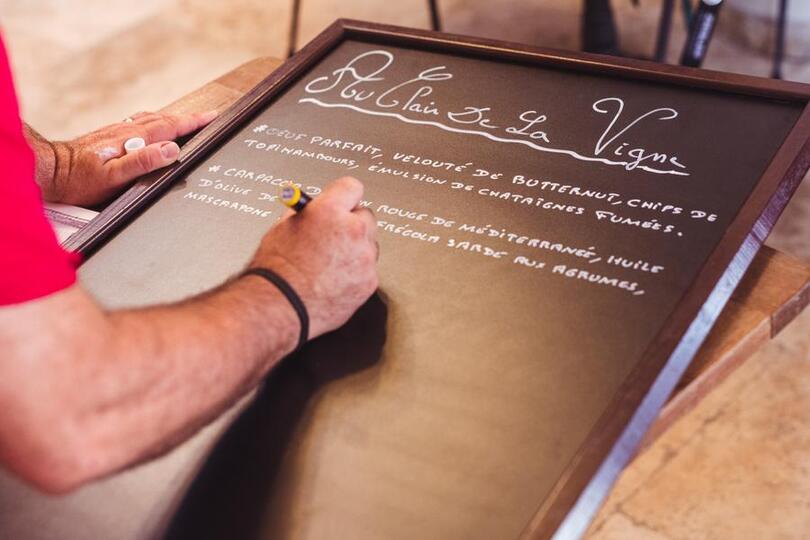 Au Clair De La Vigne
* OEUF PARFAIT, VELOUTÉ DE BUTTERNUT, CHIPS DE
TOPINAMBOURS, ÉMULSION DE CHATAÎGNES FUMÉES.
* CARPACCIO D ROUGE DE MÉDITERRANÉE, HUILE
D'OLIVE DE FRÉGOLA SARDE AUX AGRUMES,
MASCARPONE.